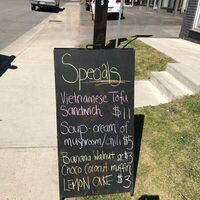 Specials
Vietnamese Tofu
Sandwich $11
Soup-cream of
mushroom/chili $5
Banana Walnut or $3
Choco Coconut muffin
LEMON CAKE $3